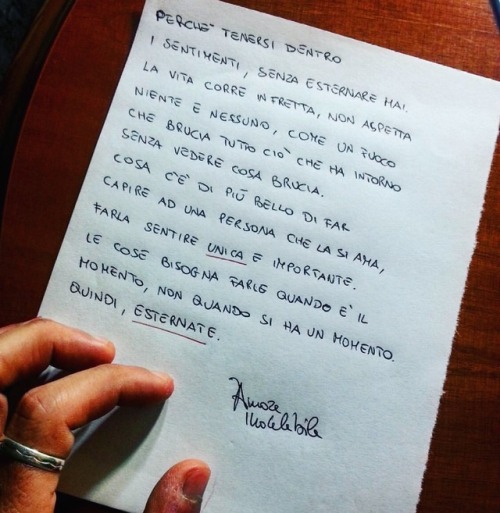 PERCHE' TENERSI DENTRO
I SENTIMENTI, SENZA ESTERNARE MAI.
LA VITA CORRE IN FRETTA, NON ASPETTA
NIENTE E NESSUNO, COME UN FUOCO
CHE BRUCIA TUTTO CIO' CHE HA INTORNO
SENZA VEDERE COSA BRUCIA.
COSA C'E' DI PIÙ BELLO DI FAR
CAPIRE AD UNA PERSONA CHE LA SI AMA,
FARLA SENTIRE UNICA E IMPORTANTE.
LE COSE BISOGNA FARLE QUANDO E' IL
MOMENTO, NON QUANDO SI HA UN MOMENTO.
QUINDI, ESTERNATE.
Amore
Indelebile